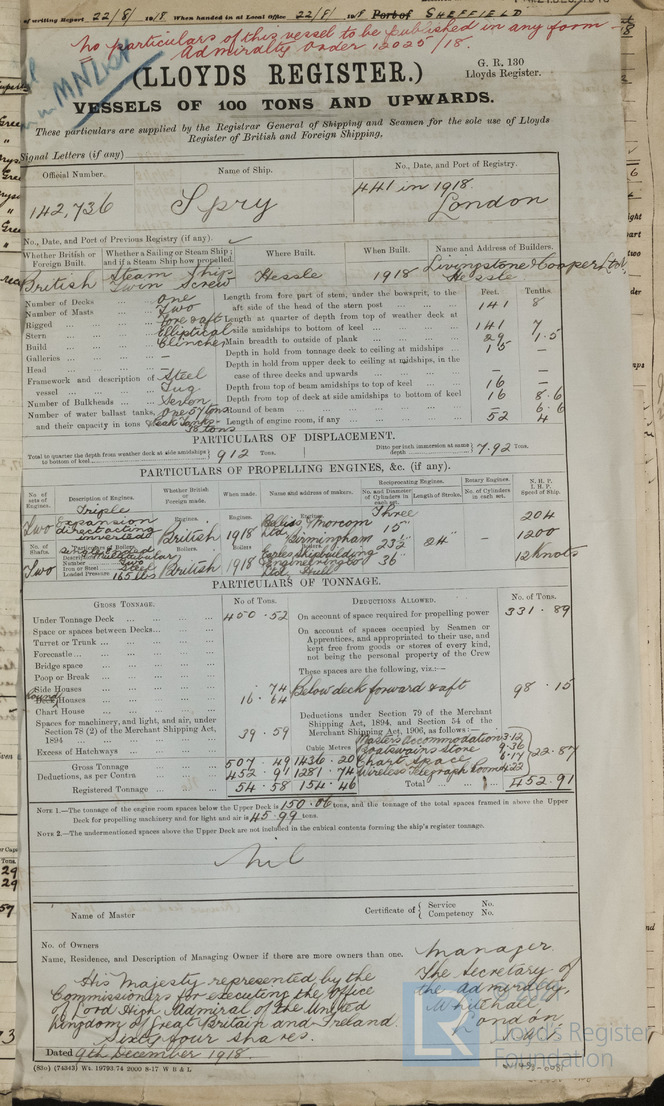 of writing Report 22/8/ 1918 When handed in at Local Office 22/8/ 1918 Port of SHEFFIELD
No particulars of this vessel to be published in any form
Admiralty Order 12025/18.
(LLOYDS REGISTER.)
G. R. 130
Lloyds Register.
VESSELS OF 100 TONS AND UPWARDS.
These particulars are supplied by the Registrar General of Shipping and Seamen for the sole use of Lloyds
Register of British and Foreign Shipping.
Signal Letters (if any)
Official Number. Name of Ship. No., Date, and Port of Registry.
142,736 Spry 441 in 1918. London
No., Date, and Port of Previous Registry (if any).
Whether British or Foreign Built. Whether a Sailing or Steam Ship; and if a Steam Ship how propelled. Where Built. When Built. Name and Address of Builders.
British Steam Ship Twin Screw Hessle 1918 Livingstone & Cooper Ltd. Hessle
Feet. Tenths.
Number of Decks one
Number of Masts Two
Rigged Fore & aft
Stern Elliptical
Build Clincher
Galleries —
Head —
Framework and description of vessel Steel Tug
Number of Bulkheads Seven
Number of water ballast tanks, and their capacity in tons one 57 tons Peak Tanks 38 tons
Length from fore part of stem, under the bowsprit, to the aft side of the head of the stern post 141 8
Length at quarter of depth from top of weather deck at side amidships to bottom of keel 141 7
Main breadth to outside of plank 29 1.5
Depth in hold from tonnage deck to ceiling at midships 15 —
Depth in hold from upper deck to ceiling at midships, in the case of three decks and upwards — —
Depth from top of beam amidships to top of keel 16 —
Depth from top of deck at side amidships to bottom of keel 16 8.6
Round of beam — 6.6
Length of engine room, if any 52 4
PARTICULARS OF DISPLACEMENT.
Total to quarter the depth from weather deck at side amidships to bottom of keel 912 Tons. Ditto per inch immersion at same depth 7.92 Tons.
PARTICULARS OF PROPELLING ENGINES, &c. (if any).
No. of sets of Engines. Description of Engines. Whether British or Foreign made. When made. Name and address of makers. Reciprocating Engines. No. and Diameter of Cylinders in each set. Length of Stroke. Rotary Engines. No. of Cylinders in each set. N.H.P. I.H.P. Speed of Ship.
Two Triple Expansion direct acting inverted Engines. British Engines. 1918 Engines. Belliss & Morcom Ltd. Birmingham Three 15" 23½" 36" 24" 204 1200 12 knots
No. of Shafts. Particulars of Boilers. Description
Number Two
Iron or Steel Steel
Loaded Pressure 165 lbs
Two Boilers. British Boilers 1918 Boilers Earles Shipbuilding Ltd. Hull
PARTICULARS OF TONNAGE.
GROSS TONNAGE. No of Tons. DEDUCTIONS ALLOWED. No. of Tons.
Under Tonnage Deck 450.52
Space or spaces between Decks
Turret or Trunk
Forecastle
Bridge space
Poop or Break
Side Houses .74
Round Deck Houses 16.64
Chart House
Spaces for machinery, and light, and air, under Section 78 (2) of the Merchant Shipping Act, 1894 39.59
Excess of Hatchways
Cubic Metres
Gross Tonnage 507.49 1436.20
Deductions, as per Contra 452.91 1281.74
Registered Tonnage 54.58 154.46
On account of space required for propelling power 331.89
On account of spaces occupied by Seamen or Apprentices, and appropriated to their use, and kept free from goods or stores of every kind, not being the personal property of the Crew
These spaces are the following, viz.:—
Below deck forward & aft 98.15
Deductions under Section 79 of the Merchant Shipping Act, 1894, and Section 54 of the Merchant Shipping Act, 1906, as follows:—
Masters Accommodation 3.12
Boatswains Store 9.36
Chart Space 6.17
Wireless Telegraph Room 4.22
22.87
Total 452.91
NOTE 1.—The tonnage of the engine room spaces below the Upper Deck is 150.06 tons, and the tonnage of the total spaces framed in above the Upper
Deck for propelling machinery and for light and air is 45.99 tons.
NOTE 2.—The undermentioned spaces above the Upper Deck are not included in the cubical contents forming the ship's register tonnage.
Nil
Name of Master Certificate of { Service No. Competency No.
No. of Owners
Name, Residence, and Description of Managing Owner if there are more owners than one.
His Majesty represented by the
Commissioners for executing the Office
of Lord High Admiral of the United
Kingdom of Great Britain and Ireland.
Sixty four shares.
Manager
The Secretary of
the Admiralty,
Whitehall
London
S.W.1.
Dated 9th December 1918.
(83o) (74343) Wt. 19793/74 2000 8-17 W B & L
LR
Lloyd's Register
Foundation